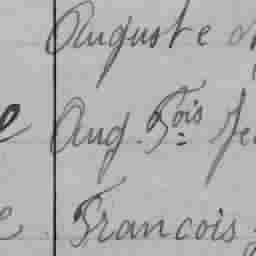 Auguste
Aug. Fois
Francois